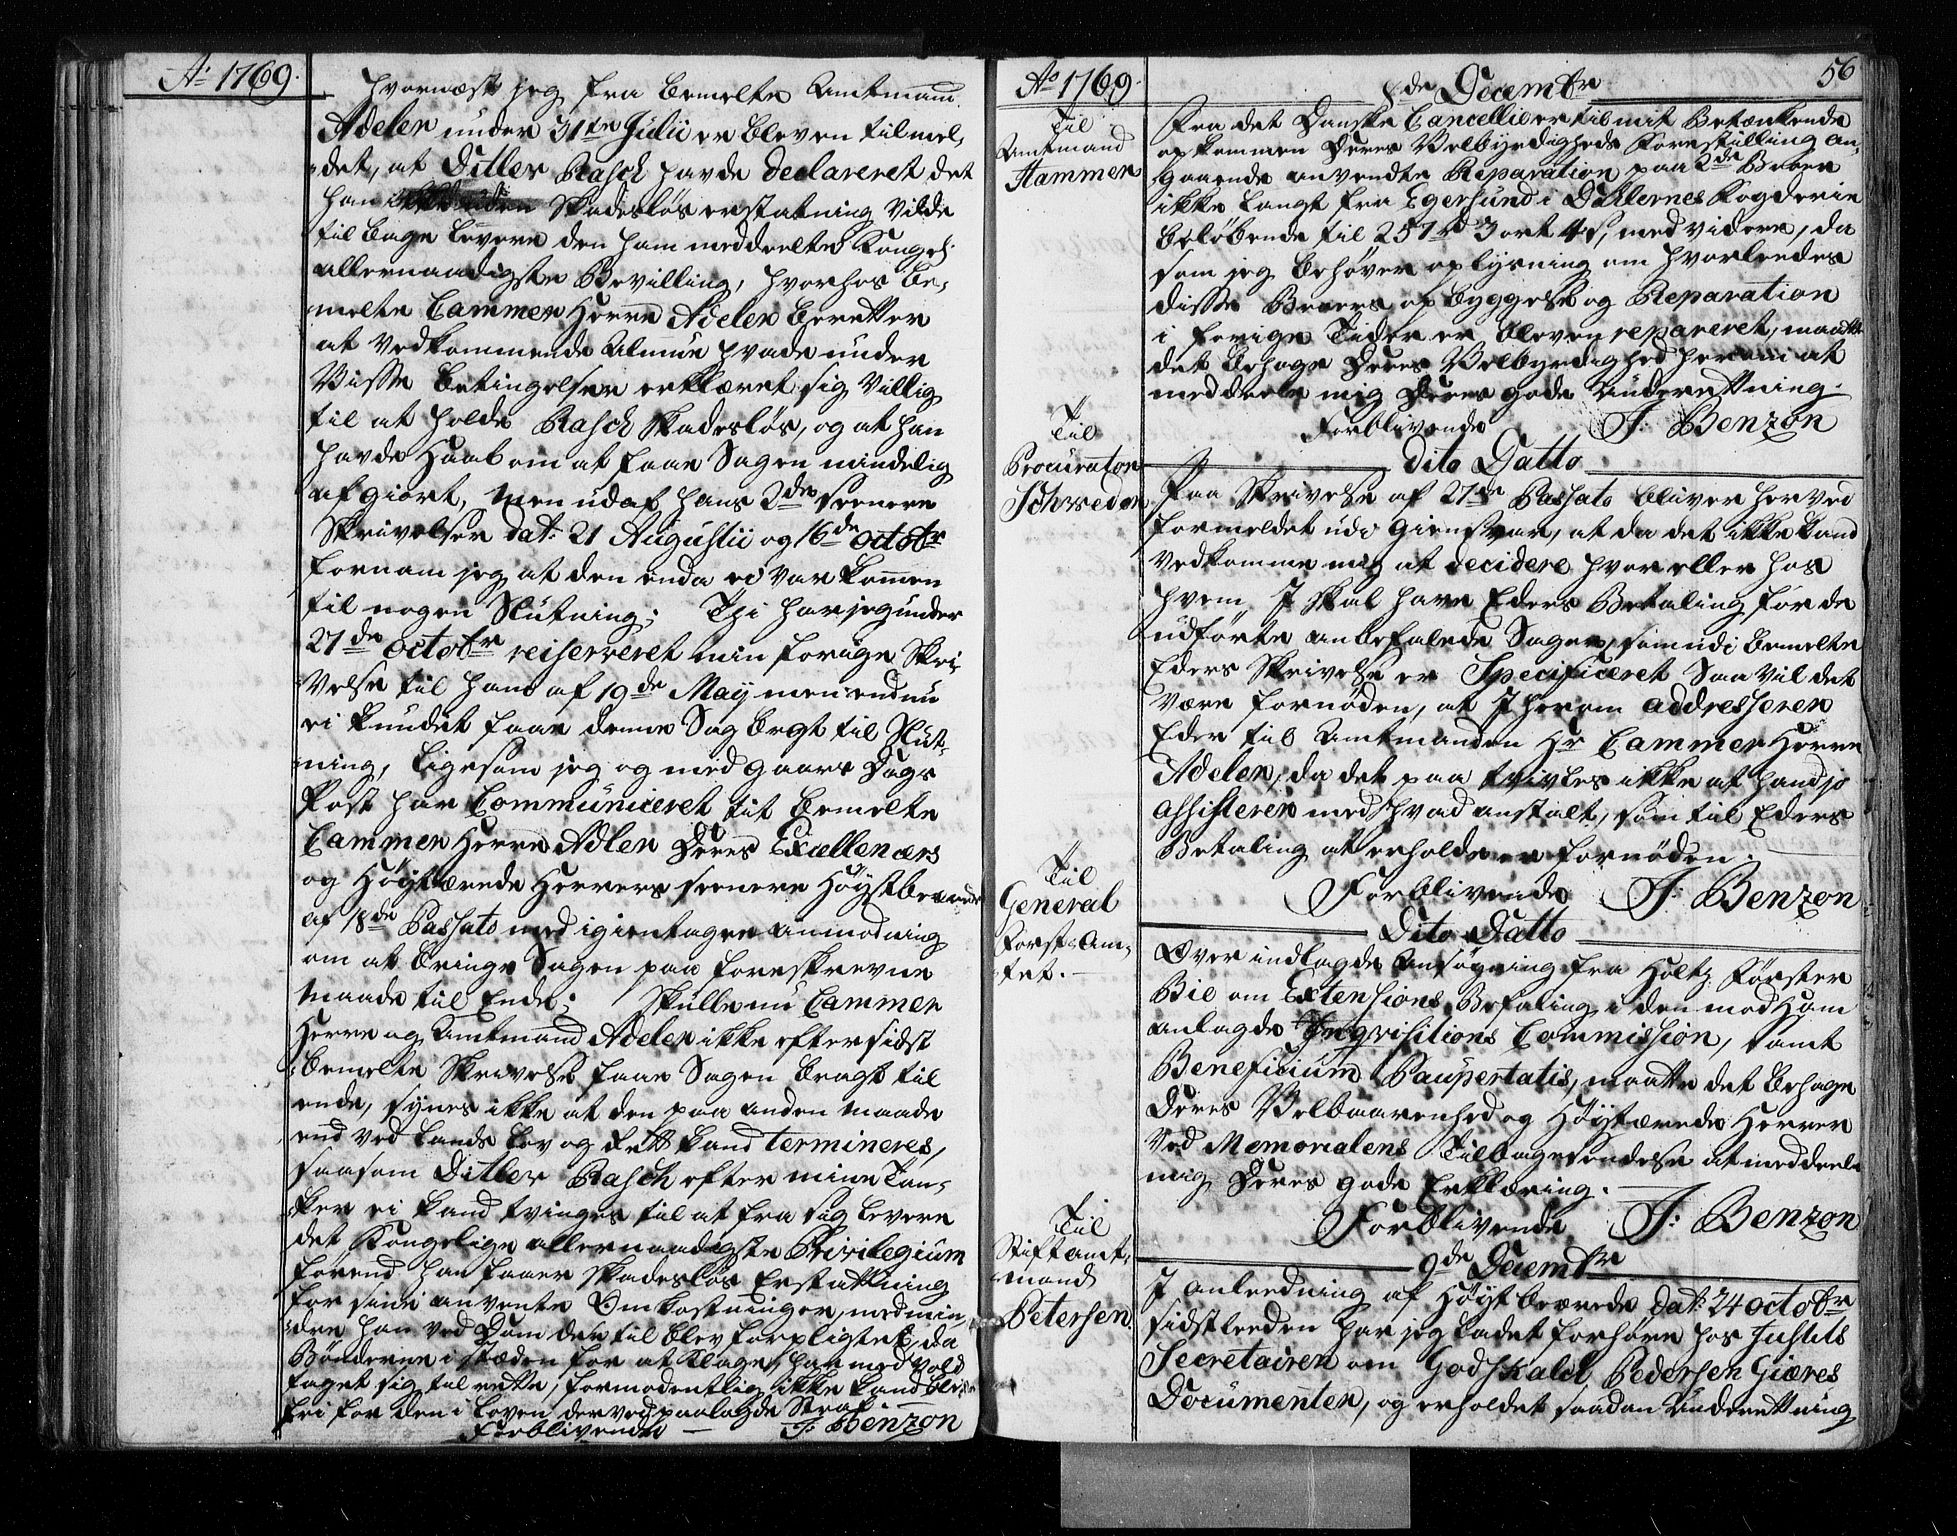 Aº 1769.
hvornæst jeg fra bemelte Amtmand
Adeler under 31te Julii er bleven tilmel-
det, at Ditlev Rasch havde declareret det
han Skadesløs erstatning vilde
tilbage levere den ham meddeelte Kongel:
allernaadigste Bevilling, hvorhos be-
melte Cammer Herre Adeler beretter
at vedkommende Almue hvade under
Visse betingelser erklæret sig villig
til at holde Rasch skadesløs, og at han
havde Haab om at faae Sagen mindelig
afgiort, men udaf hans 2de seenere
Skrivelser dat: 21 Augustii og 16de Octobr
fornam jeg at den enda ei var kommen
til nogen Slutning; Thi har jeg under
27de Octobr reiserveret min forrige Skri-
velse til ham af 19de May men endnu
ei kundet faae denne Sag bragt til Slut-
ning, ligesom jeg og med gaars Dags
Post har Communiceret til bemelte
Cammer Herre Adler Deres Excellences
og Høystærede Herrers seenere Høystbeærede
af 18de Passato med igientagen anmodning
om at bringe Sagen paa foreskrevne
maade til Ende; Skulle nu Cammer
Herre og Amtmand Adeler ikke efter sidst
bemelte Skrivelse faae Sagen bragt til
ende, synes ikke at den paa anden maade
end ved Lands Lov og Rett kand termineres,
saasom Ditlev Rasch efter mine Tan-
ker ei kand tvinges til at fra sig levere
det Kongelige allernaadigste Privilegium
førend han faaer skadesløs Erstattning
for sine anvente Omkostninger, med min-
dre han ved Dom der til blev forpligtet, da
Bønderne i stæden for at klage, har med vold
taget sig til rette, formodentlig ikke kand blive
fri for den i Loven derved paalagde Straf.
Forblivende — J: Benzon
Aº 1769.
8de Decembr
56
Til
Amtmand
Hammer
Fra det Danske Cancellie er til mit Betænkende
opkommen Deres Velbyrdigheds Forestilling an-
gaaende anvendte Reparation paa 2de Broer
ikke langt fra Egersund i Dalernes Fogderie
beløbende til 257 rd 3 ort 4 s, med videre, da
som jeg behøver oplysning om hvorleedes
disse Broers opbyggelse og Reparation
i forige Tider er bleven repareret, maatte
det behage Deres Velbyrdighed herom at
meddeele mig Deres gode Underettning.
Forblivende J: Benzon
dito Datto
Til
Procurator
Schweder
Paa Skrivelse af 27de Passato bliver herved
formeldet udi Giensvar, at da det ikke kand
vedkomme mig at decidere hvor eller hos
hvem I skal have Eders Betaling for de
udførte anbefalede Sager, som udi bemelte
Eders Skrivelse er Specificeret Saa vil det
være fornøden, at I herom addresserer
Eder til Amtmanden Hr Cammer Herre
Adeler, da det paa tvivles ikke at hand jo
assisterer med hvad anstalt, som til Eders
Betaling at erholde er fornøden.
Forblivende J: Benzon
Dito Datto
Til
General
Forst-Am-
tet.
Over indlagde Ansøgning fra Holtz Førster
Bie om Extensions Befaling i den mod Ham
anlagde Inqvisitions Commission, samt
Beneficium Paupertatis, maatte det behage
Deres Velbaarenhed og Høystærede Herrer
ved Memorialens Tilbagesendelse at meddeele
mig Deres gode Erklæring.
Forblivende J: Benzon
9de Decembr
Til
Stiftamt-
mand
Petersen
I Anleedning af Høyst beærede dat: 24 Octobr
sidstleeden har jeg ladet forhøre hos Justits
Secretairen om Godskalck Pedersen Giæres
Documenter, og erholdet saadan Underettning